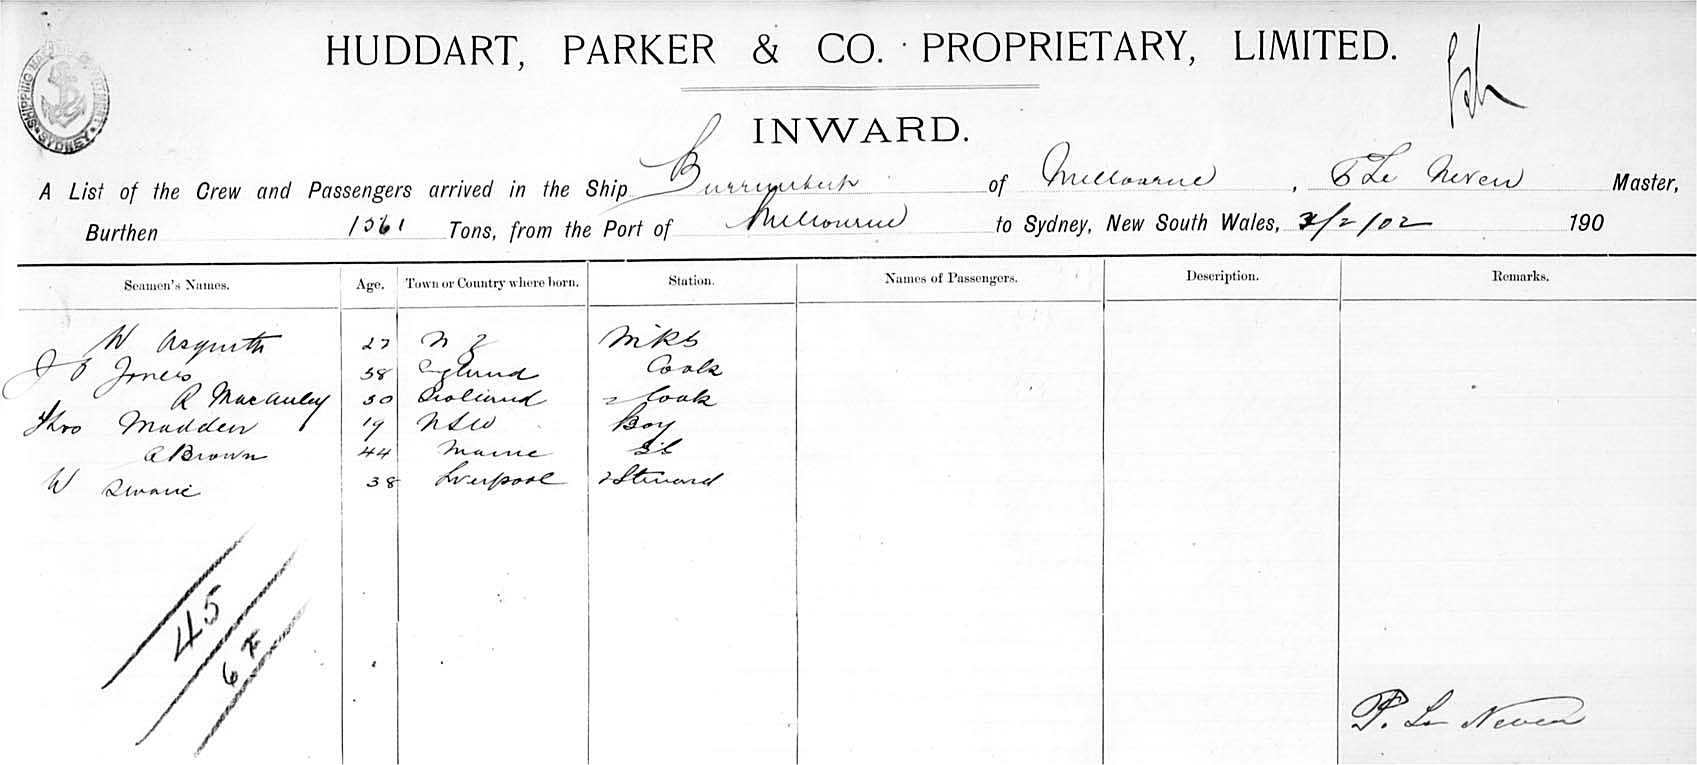 HUDDART, PARKER & CO. PROPRIETARY, LIMITED.
SHIPPING SYDNEY
INWARD.
A List of the Crew and Passengers arrived in the Ship Burrumbeet of Melbourne, Le Neven Master,
Burthen Tons, from the Port of Melbourne to Sydney, New South Wales, /2/02 190
Seamen's Names. Age. Town or Country where born. Station. Names of Passengers. Description. Remarks.
W Asquith 27 N Z
J Jones 38 England Cook
R MacAuley 30 Scotland 2 Cook
Thos Madden 19 NSW Boy
A Brown 44
W Swane 38 Liverpool 2 Steward
45
6
P. Le Neven